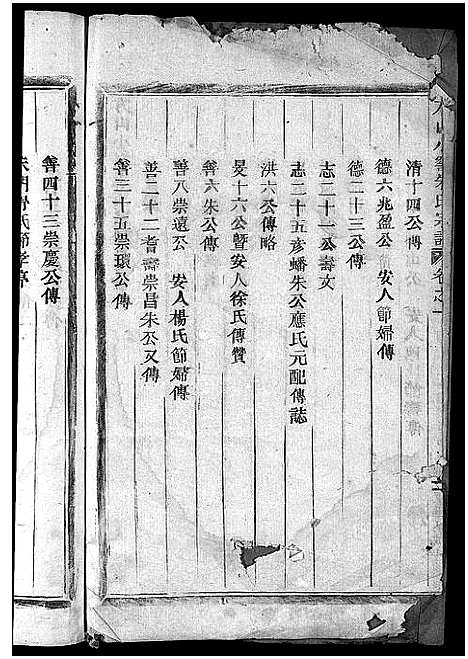 朱氏宗譜 卷之一
清十四公傳
德六兆盈公 安人節婦傳
德二十三公傳
志二十一公壽文
志二十五彥蟠朱公應氏元配傳誌
洪六公傳略
旻十六公暨安人徐氏傳贊
善六朱公傳
善八崇遠公 安人楊氏節婦傳
善二十二耆壽崇昌朱公又傳
善三十五崇環公傳
善四十三崇慶公傳